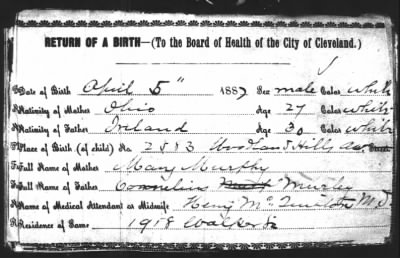 RETURN OF A BIRTH—(To the Board of Health of the City of Cleveland.)
Date of Birth April 5" 1887 Sex male Color white
Nativity of Mother Ohio Age 27 Color white
Nativity of Father Ireland Age 30 Color white
Place of Birth (of child) No. 2583 Woodland Hills Ave Street
Full Name of Mother Mary Murphy
Full Name of Father Cornelius Murphy
Name of Medical Attendant or Midwife M.D.
Residence of Same 1918